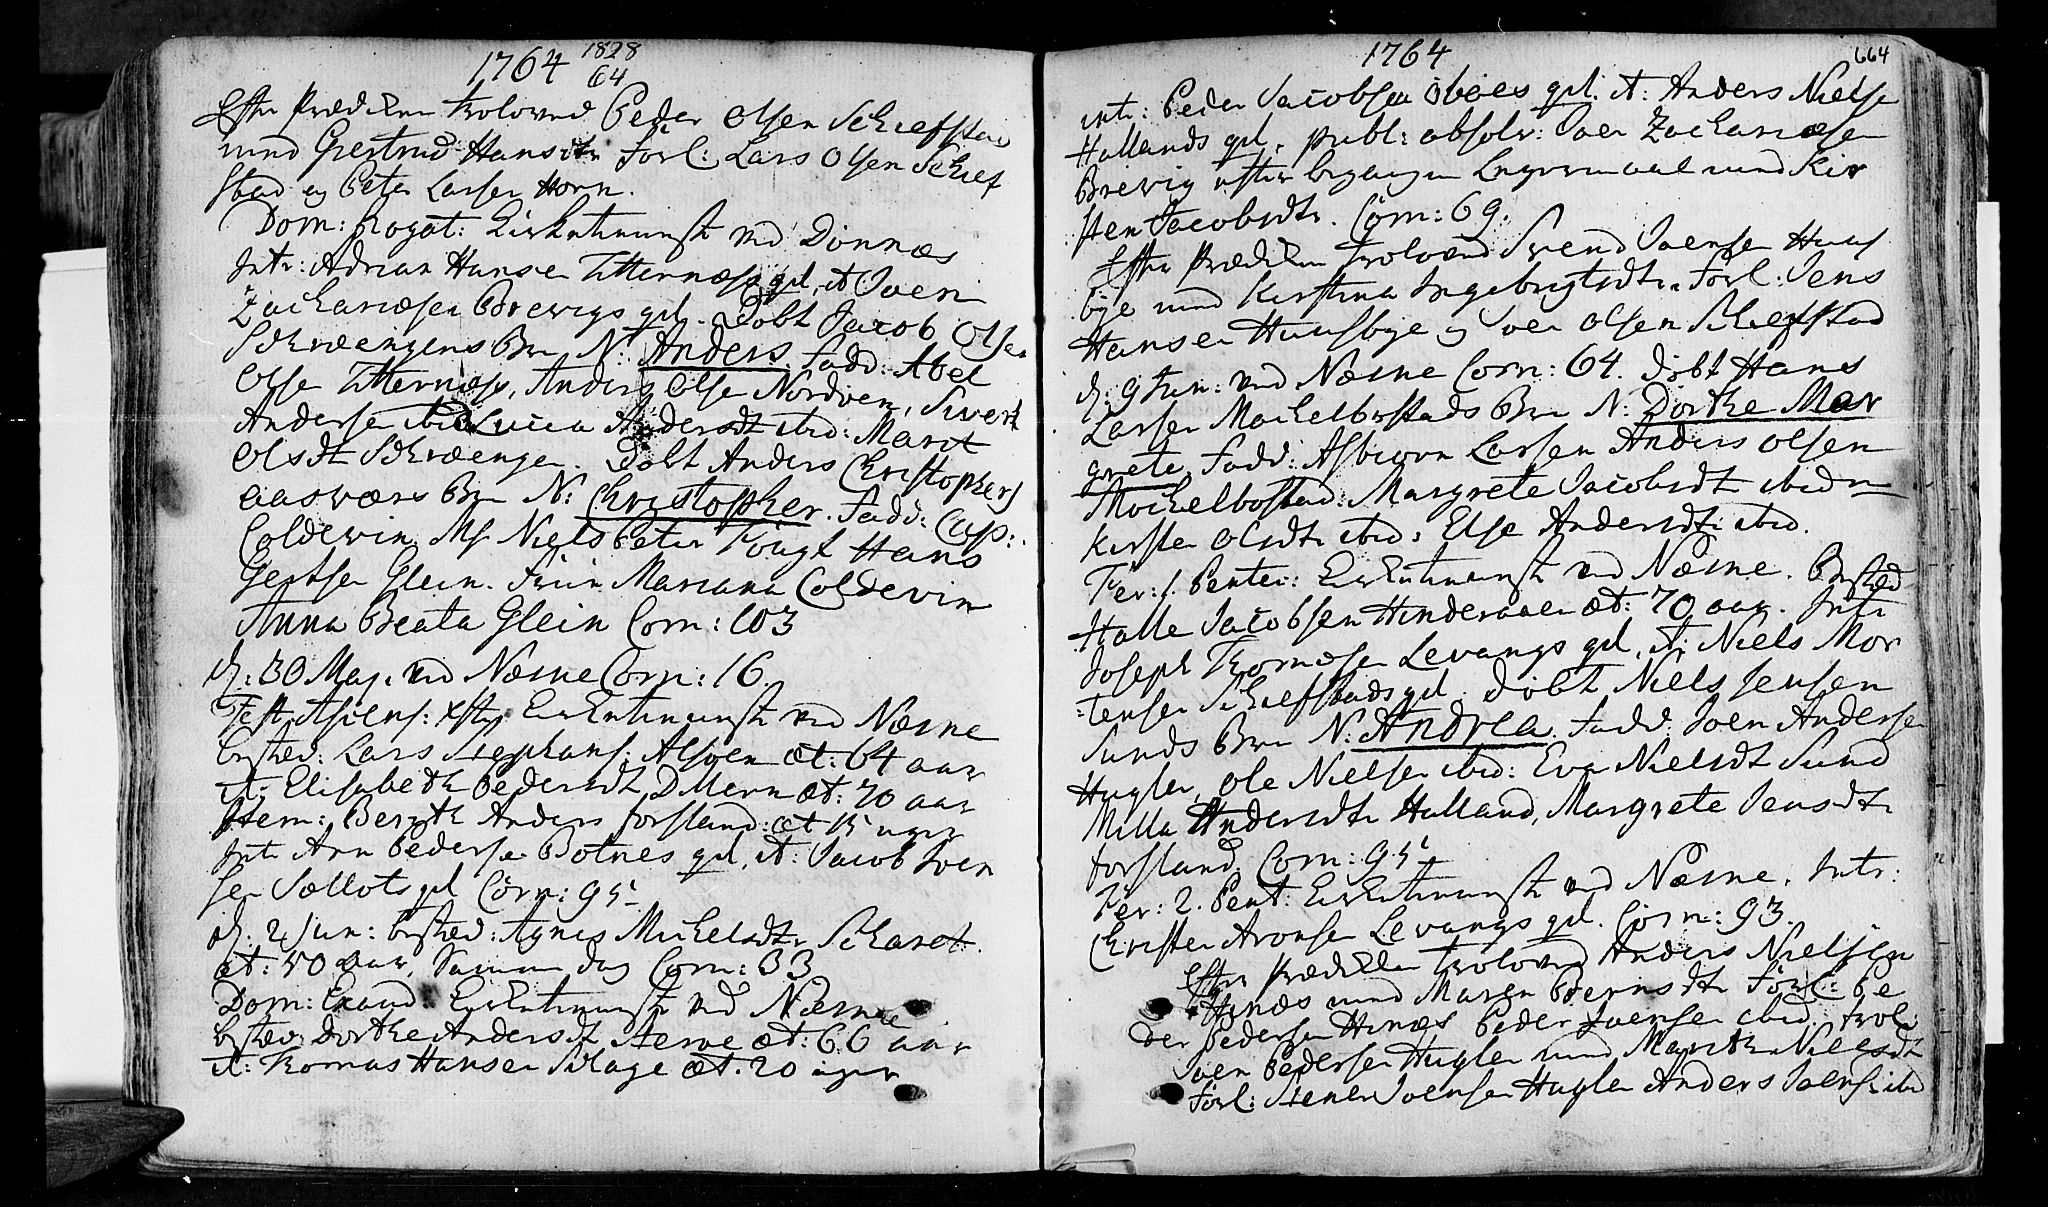 1764 1828
64
Efter Prædiken troloved Peder Olsen Schiefstad
med Giertrud Hansdtr Forl: Lars Olsen Schief
stad og Peter Larsen Horn.
Dom: Rogat: Kirketieneste ved Dönnæs
Intr: Adrian Hansen Titternæss qd, it Joen
Zachariæsen Brevigs qd. Döbt Jacob Olsen
Schrœngens Brn N: Anders. Fadd: Abel
Olsen Titternæss, Anders Olsen Nordven, Sivert
Andersen ibid Lucia Andersdt ibid: Maret
Olsdt Schrœngen. Döbt Anders Christophers
aasværs Brn N: Christopher. Fadd: Cap:
Coldevin Mr Niels Peter Hans
Gertsen Glein. Frue Mariana Coldevin
Anna Beata Glein Com: 103
d: 30 Maj. ved Næsne Com: 16.
Fest: Asiens: xsti. Kirketieneste ved Næsne
begrabed: Lars Stephans: Alsöen æt: 64 aar
it: Elisabeth Pedersdt æt: 70 aar
Item: Bernth Anders Forsland: æt 15 uger
Intr Arn Pedersen Botnes qd, it: Jacob Joen
sen Sællots qd Com: 95
d: 2 Jun: begrabed: Agnis Michelsdtr Scharet.
æt: 50 aar, Samme dag Com: 33
Dom: Exaud: Kirketieneste ved Næsne
begrabed Dorthe Andersdt Nerne æt: 66 aar
it: Thomas Hansen Schage æt. 20 uger
1764 664
intr: Peder Jacobsen qd. it: Anders Nielsen
Hallands qd, publ: absolv: Joen Zachariæsen
Brevig efter begangen Leyermaal med Kir
sten Jacobsdtr. Com: 69.
Efter Prædiken trolovend Svend Joensen Huus
bye med Kirstina Ingebrigtsdtr. Forl: Jens
Hansen Huusbye og Joen Olsen Schiefstad
d: 9 Jun: ved Næsne Com: 64. Döbt Hans
Larsen Mochelbostads Brn N: Dorthe Mar
grete, Fadd: Asbiörn Larsen Anders Olsen
Mochelbostad: Margrete Jacobsdt ibidm
Kirsten Olsdtr ibid: Else Andersdtr ibid.
Fer: 1. Pentec: Kirketieneste ved Næsne. Begrabed
Halle Jacobsen Hinderaaen æt: 70 aar. Intr
Joseph Thomæsen Levangs qd, it: Niels Mor
tensen Schiefstads qd. Döbt Niels Jensen
Sunds Brn N: Andrea. Fadd: Joen Andersen
Hugler, Ole Nielsen ibid: Eva Nielsdt Sund
Milla Andersdtr Halland, Margrete Jensdtr
Forsland, Com: 95
Fer: 2. Pent: Kirketieneste ved Næsne. Intr:
Christen Aronsen Levangs qd. Com: 93.
Efter Prædiken trolovend Anders Nielsen
Hinæs med Maren Bernsdtr Forl: Pe
der Pedersen Hinæs Peder Joensen ibid, trol:
Joen Pedersen Hugler med Marethe Nielsdt
Forl: Stener Joensen Hugler Anders Joens: ibid